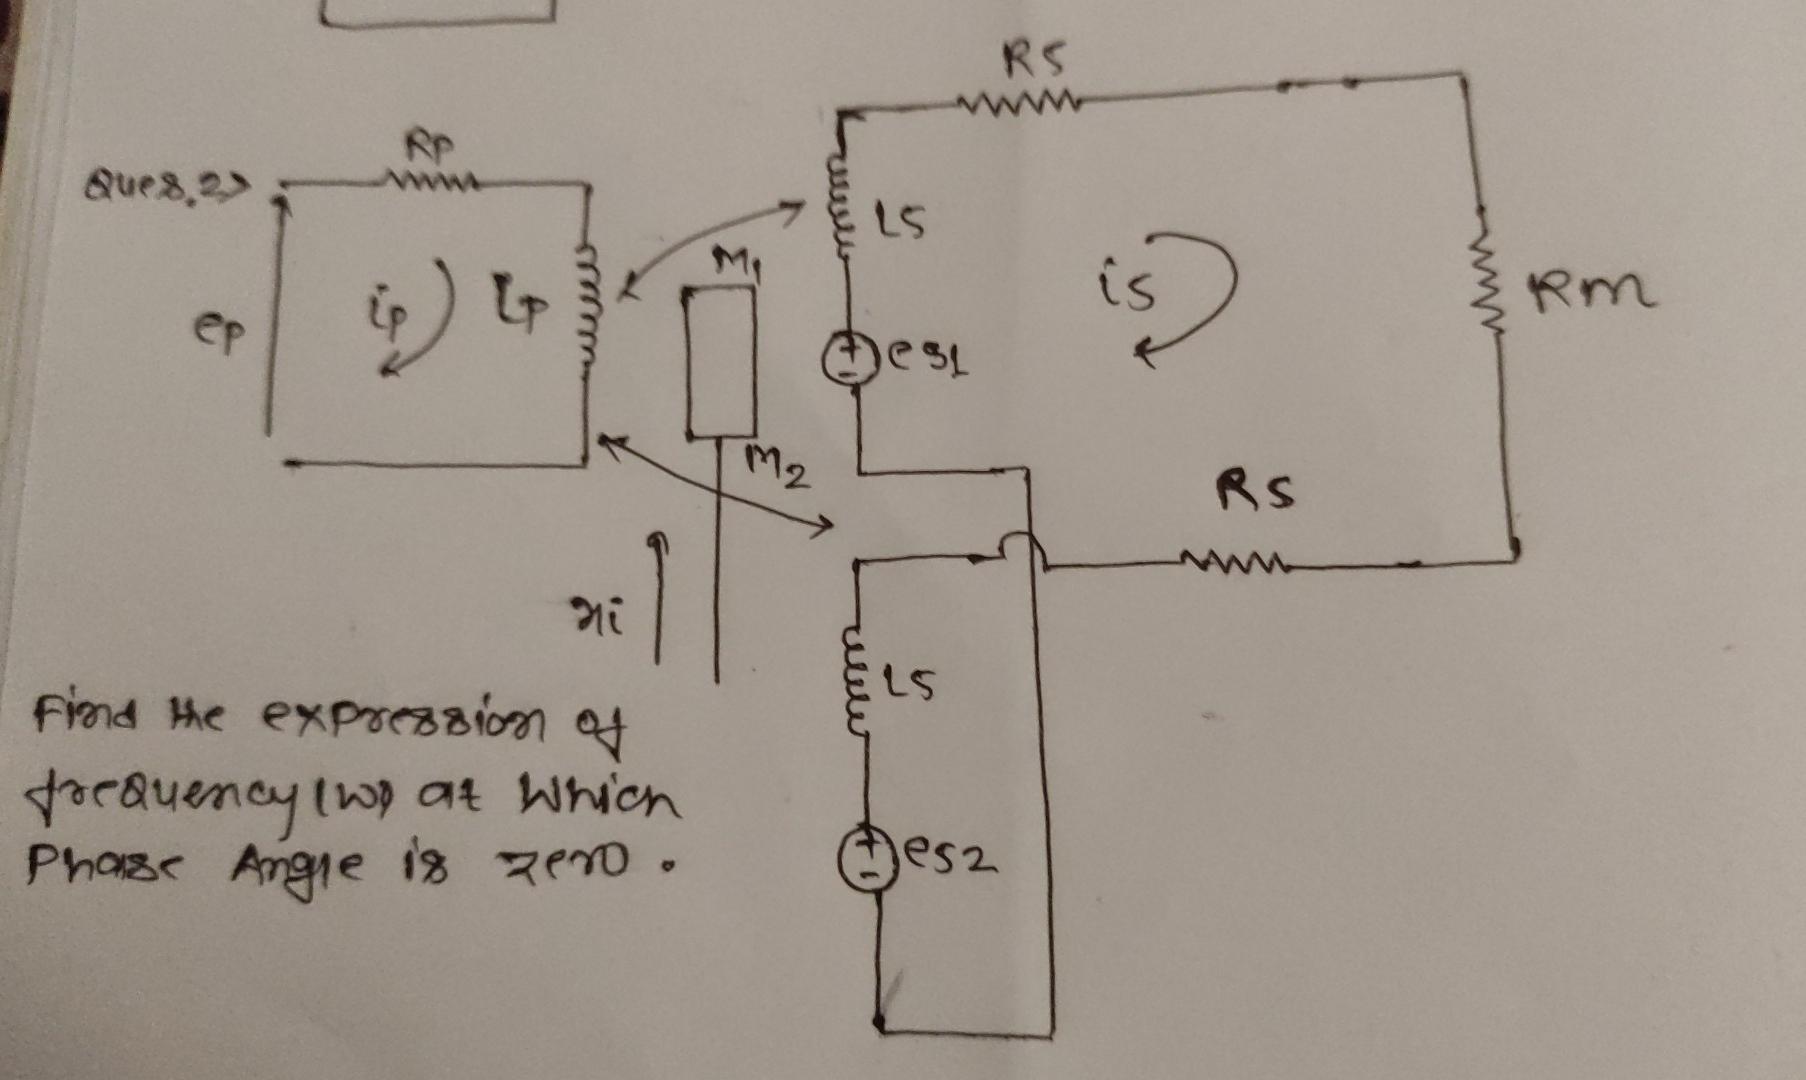 RS
Ques.2>
Rp
ep
ip
Lp
M1
M2
xi
LS
es1
is
Rm
RS
LS
es2
Find the expression of
frequency (w) at which
Phase Angle is zero.